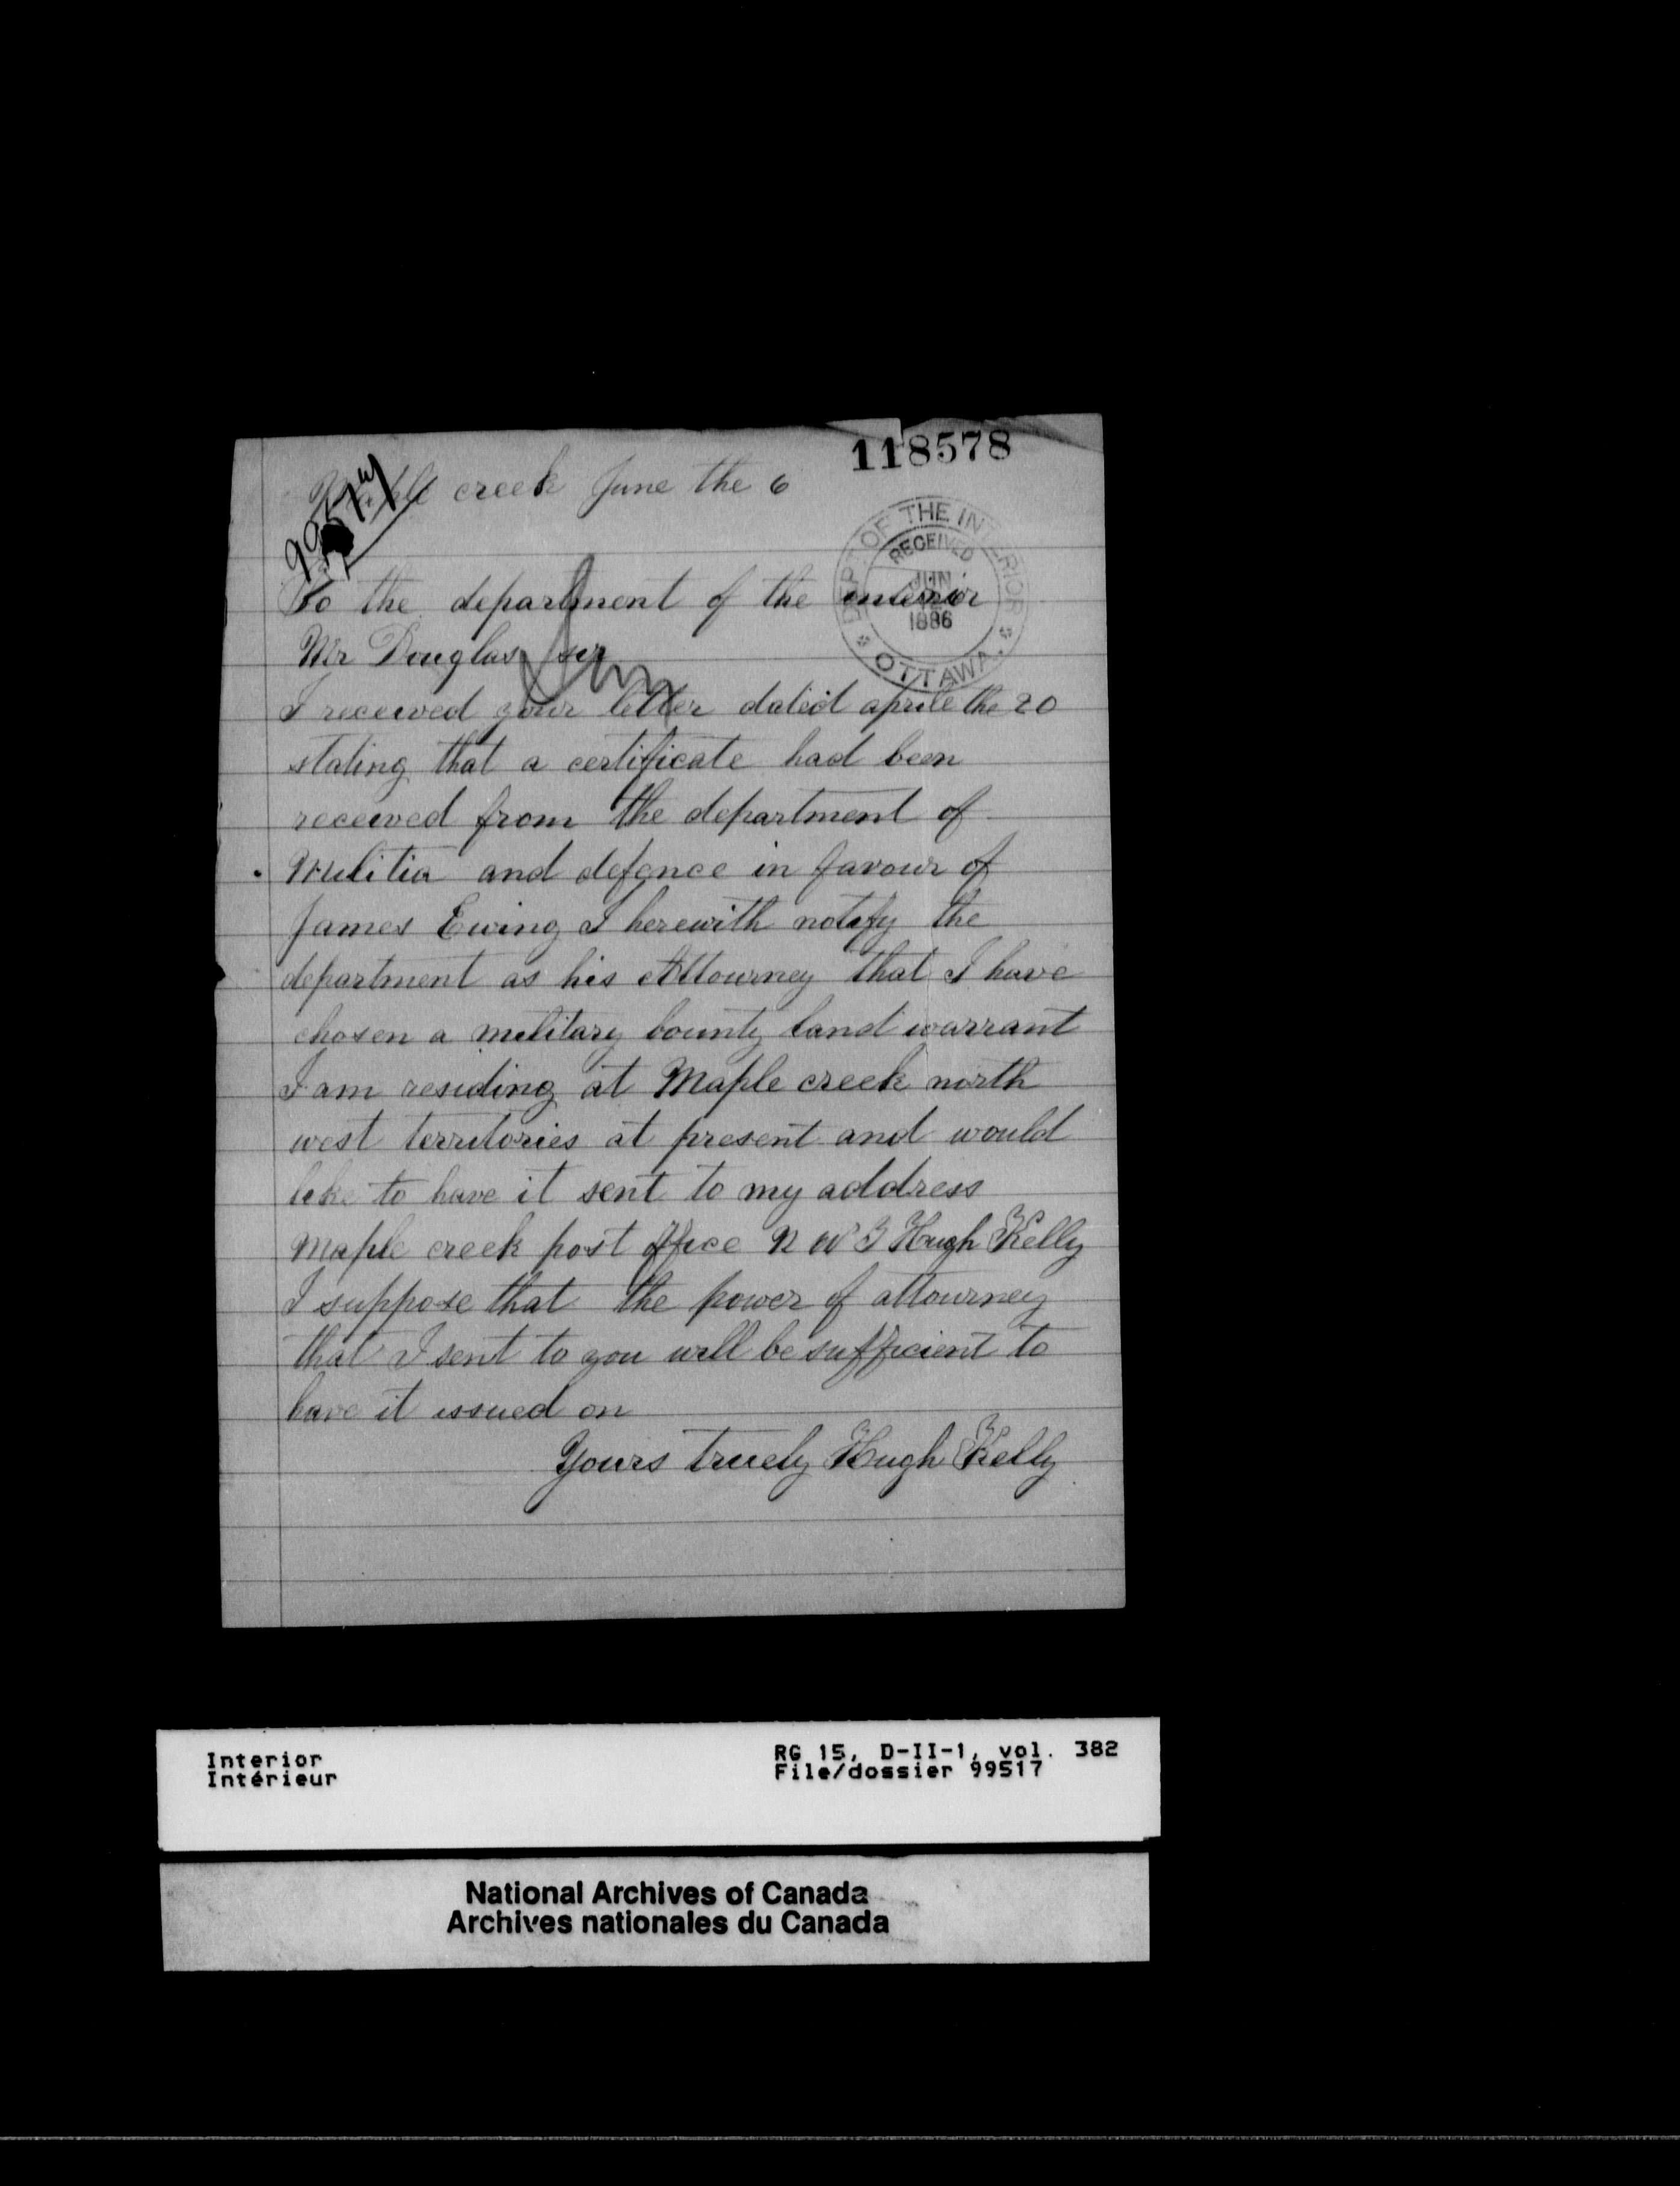 118578
Maple creek June the 6
DEPT OF THE INTERIOR
RECEIVED
JUN
1886
OTTAWA.
To the department of the interior
Mr Douglas sir
I received your letter dated aprile the 20
stating that a certificate had been
received from the department of
Militia and defence in favour of
James Ewing I herewith notify the
department as his Attourney that I have
chosen a military bounty land warrant
I am residing at Maple creek north
west territories at present and would
like to have it sent to my address
Maple creek post office N W T Hugh Kelly
I suppose that the power of attourney
that I sent to you will be sufficient to
have it issued on
Yours truely Hugh Kelly
Interior
Intérieur
RG 15, D-II-1, vol. 382
File/dossier 99517
National Archives of Canada
Archives nationales du Canada